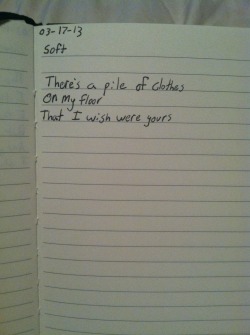 03-17-13
Soft
There's a pile of clothes
On my floor
That I wish were yours